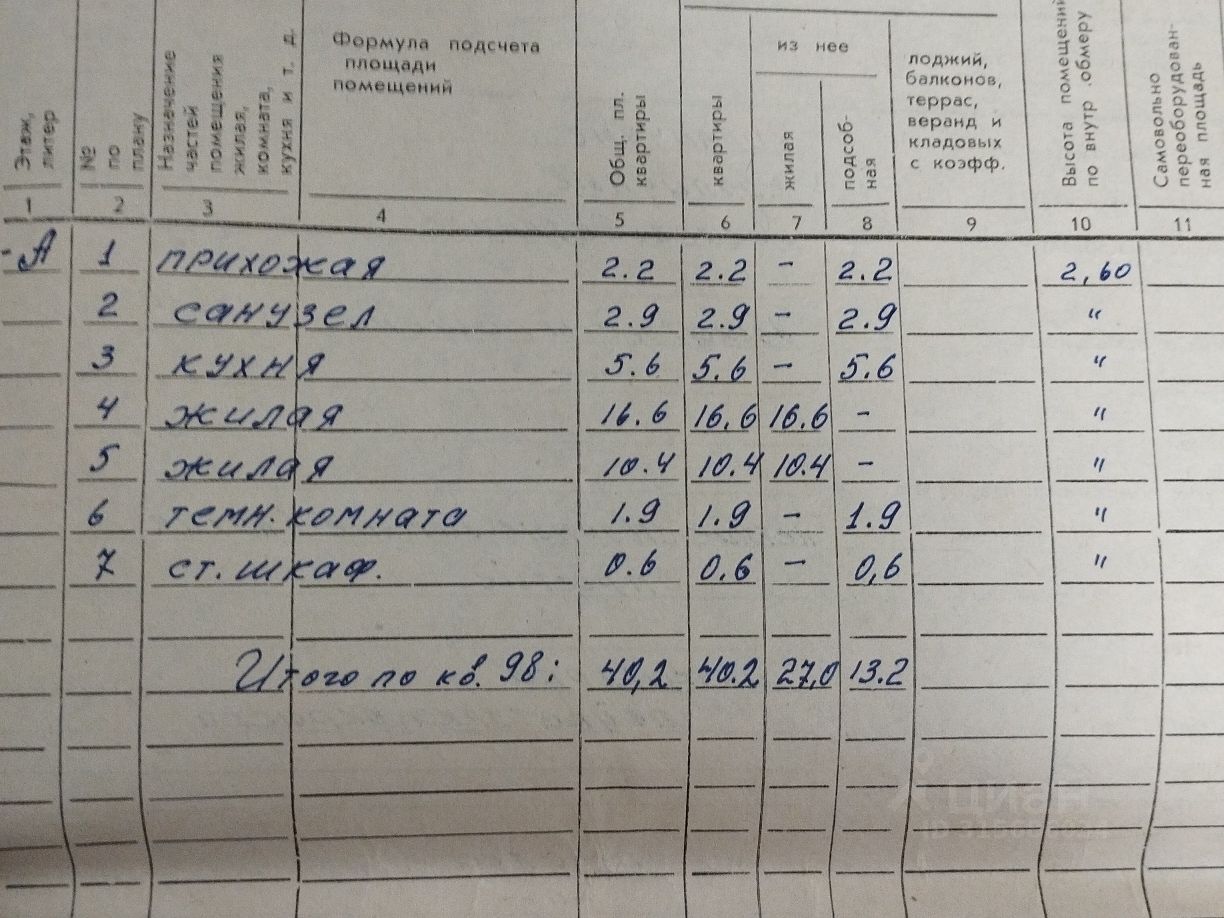 Этаж, литер
№ по плану
Назначение частей помещения жилая, комната, кухня и т. д.
Формула подсчета
площади
помещений
Общ. пл. квартиры
из нее
квартиры
жилая
подсоб-ная
лоджий,
балконов,
террас,
веранд и
кладовых
с коэфф.
Высота помещений по внутр .обмеру
Самовольно переоборудован-ная площадь
1 2 3 4 5 6 7 8 9 10 11
-А 1 прихожая 2.2 2.2 - 2.2 2,60
2 санузел 2.9 2.9 - 2.9 "
3 кухня 5.6 5.6 - 5.6 "
4 жилая 16.6 16.6 16.6 - "
5 жилая 10.4 10.4 10.4 - "
6 темн. комната 1.9 1.9 - 1.9 "
7 ст. шкаф. 0.6 0.6 - 0,6 "
Итого по кв. 98: 40,2 40.2 27,0 13.2